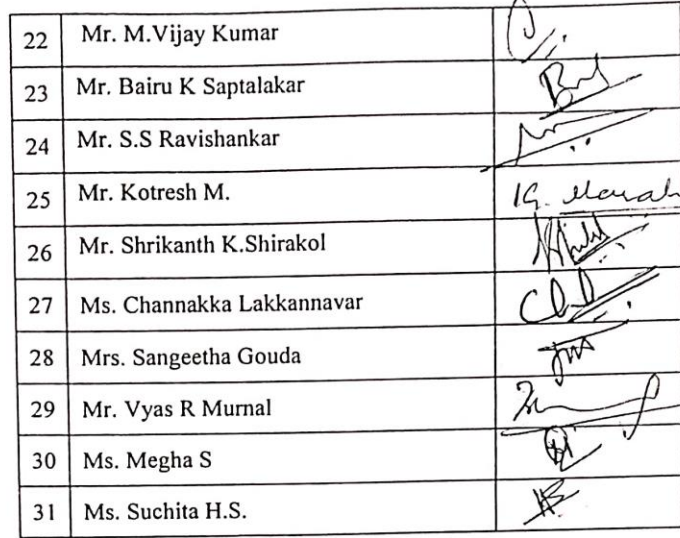 22 Mr. M.Vijay Kumar
23 Mr. Bairu K Saptalakar
24 Mr. S.S Ravishankar
25 Mr. Kotresh M.
26 Mr. Shrikanth K.Shirakol
27 Ms. Channakka Lakkannavar
28 Mrs. Sangeetha Gouda
29 Mr. Vyas R Murnal
30 Ms. Megha S
31 Ms. Suchita H.S.